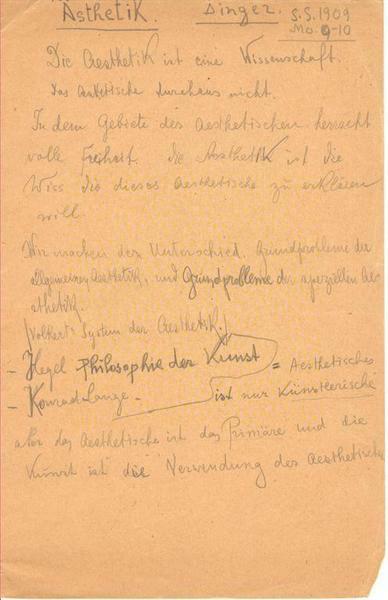 Ästhetik. Dinger. S.S. 1909
Mo. 9-10
Die Aesthetik ist eine Wissenschaft.
Das Ästhetische durchaus nicht.
In dem Gebiete des Aesthetischen herrscht
volle Freiheit. Die Aesthetik ist die
Wiss die dieses Aesthetische zu erklären
will.
Wir machen den Unterschied. Grundprobleme der
allgemeinen Aesthetik, und Grundprobleme der speziellen Aes
thetik.
(Volkert System der Aesthetik.)
- Hegel Philosophie der Kunst = Aesthetisches
- Konrad Lange - ist nur Künstlerische
aber das Aesthetische ist das Primäre und die
Kunst ist die Verwendung des Aesthetischen